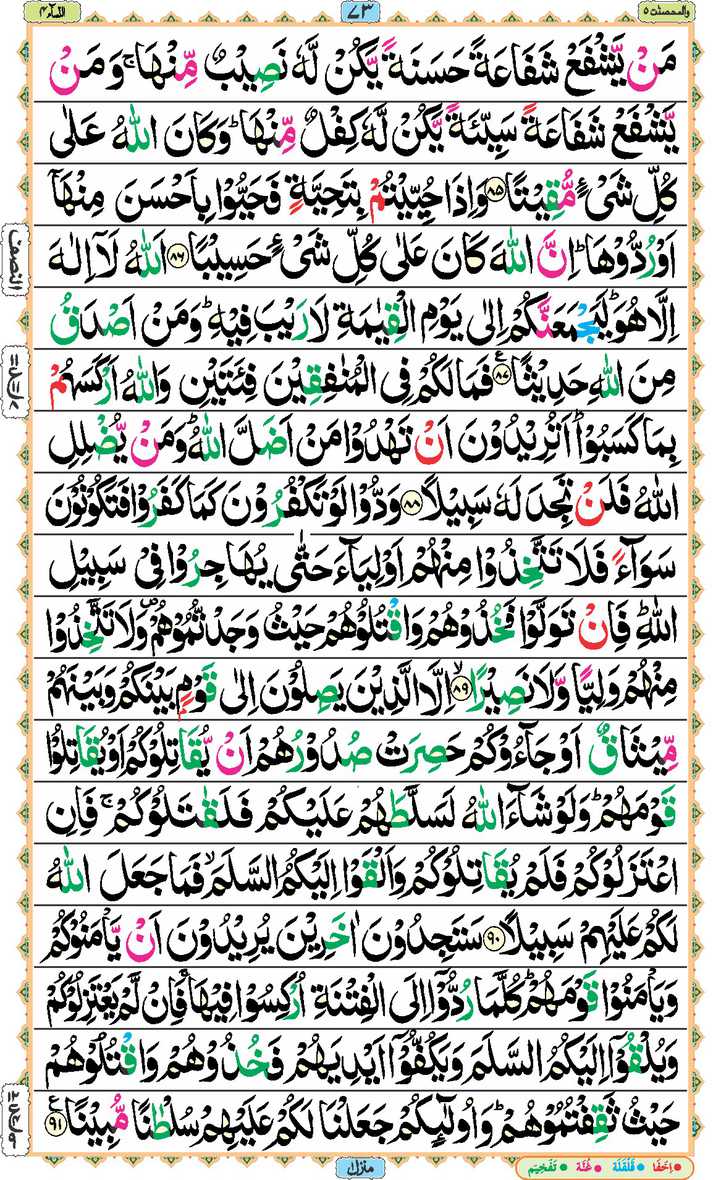 والمحصنت ٥
٨٣
النساء ٤
مَنْ يَّشْفَعْ شَفَاعَةً حَسَنَةً يَّكُنْ لَّهٗ نَصِيْبٌ مِّنْهَا ۚ وَمَنْ
يَّشْفَعْ شَفَاعَةً سَيِّئَةً يَّكُنْ لَّهٗ كِفْلٌ مِّنْهَا ؕ وَكَانَ اللّٰهُ عَلٰى
كُلِّ شَىْءٍ مُّقِيْتًا ﴿٨٥﴾ وَاِذَا حُيِّيْتُمْ بِتَحِيَّةٍ فَحَيُّوْا بِاَحْسَنَ مِنْهَاۤ
اَوْ رُدُّوْهَا ؕ اِنَّ اللّٰهَ كَانَ عَلٰى كُلِّ شَىْءٍ حَسِيْبًا ﴿٨٦﴾ اَللّٰهُ لَاۤ اِلٰهَ
اِلَّا هُوَ ؕ لَيَجْمَعَنَّكُمْ اِلٰى يَوْمِ الْقِيٰمَةِ لَا رَيْبَ فِيْهِ ؕ وَمَنْ اَصْدَقُ
مِنَ اللّٰهِ حَدِيْثًا ﴿٨٧﴾ ع فَمَا لَكُمْ فِى الْمُنٰفِقِيْنَ فِئَتَيْنِ وَاللّٰهُ اَرْكَسَهُمْ
بِمَا كَسَبُوْا ؕ اَتُرِيْدُوْنَ اَنْ تَهْدُوْا مَنْ اَضَلَّ اللّٰهُ ؕ وَمَنْ يُّضْلِلِ
اللّٰهُ فَلَنْ تَجِدَ لَهٗ سَبِيْلًا ﴿٨٨﴾ وَدُّوْا لَوْ تَكْفُرُوْنَ كَمَا كَفَرُوْا فَتَكُوْنُوْنَ
سَوَآءً فَلَا تَتَّخِذُوْا مِنْهُمْ اَوْلِيَآءَ حَتّٰى يُهَاجِرُوْا فِىْ سَبِيْلِ
اللّٰهِ ؕ فَاِنْ تَوَلَّوْا فَخُذُوْهُمْ وَاقْتُلُوْهُمْ حَيْثُ وَجَدْتُّمُوْهُمْ ۪ وَلَا تَتَّخِذُوْا
مِنْهُمْ وَلِيًّا وَّلَا نَصِيْرًا ۙ﴿٨٩﴾ اِلَّا الَّذِيْنَ يَصِلُوْنَ اِلٰى قَوْمٍۭ بَيْنَكُمْ وَبَيْنَهُمْ
مِّيْثَاقٌ اَوْ جَآءُوْكُمْ حَصِرَتْ صُدُوْرُهُمْ اَنْ يُّقَاتِلُوْكُمْ اَوْ يُقَاتِلُوْا
قَوْمَهُمْ ؕ وَلَوْ شَآءَ اللّٰهُ لَسَلَّطَهُمْ عَلَيْكُمْ فَلَقٰتَلُوْكُمْ ۚ فَاِنِ
اعْتَزَلُوْكُمْ فَلَمْ يُقَاتِلُوْكُمْ وَاَلْقَوْا اِلَيْكُمُ السَّلَمَ ۙ فَمَا جَعَلَ اللّٰهُ
لَكُمْ عَلَيْهِمْ سَبِيْلًا ﴿٩٠﴾ سَتَجِدُوْنَ اٰخَرِيْنَ يُرِيْدُوْنَ اَنْ يَّاْمَنُوْكُمْ
وَيَاْمَنُوْا قَوْمَهُمْ ؕ كُلَّمَا رُدُّوْۤا اِلَى الْفِتْنَةِ اُرْكِسُوْا فِيْهَا ۚ فَاِنْ لَّمْ يَعْتَزِلُوْكُمْ
وَيُلْقُوْۤا اِلَيْكُمُ السَّلَمَ وَيَكُفُّوْۤا اَيْدِيَهُمْ فَخُذُوْهُمْ وَاقْتُلُوْهُمْ
حَيْثُ ثَقِفْتُمُوْهُمْ ؕ وَاُولٰٓئِكُمْ جَعَلْنَا لَكُمْ عَلَيْهِمْ سُلْطٰنًا مُّبِيْنًا ﴿٩١﴾ ع
النصف
منزل
اِخفَا • قَلقَلَة • غُنَّة • تَفْخِيْم •